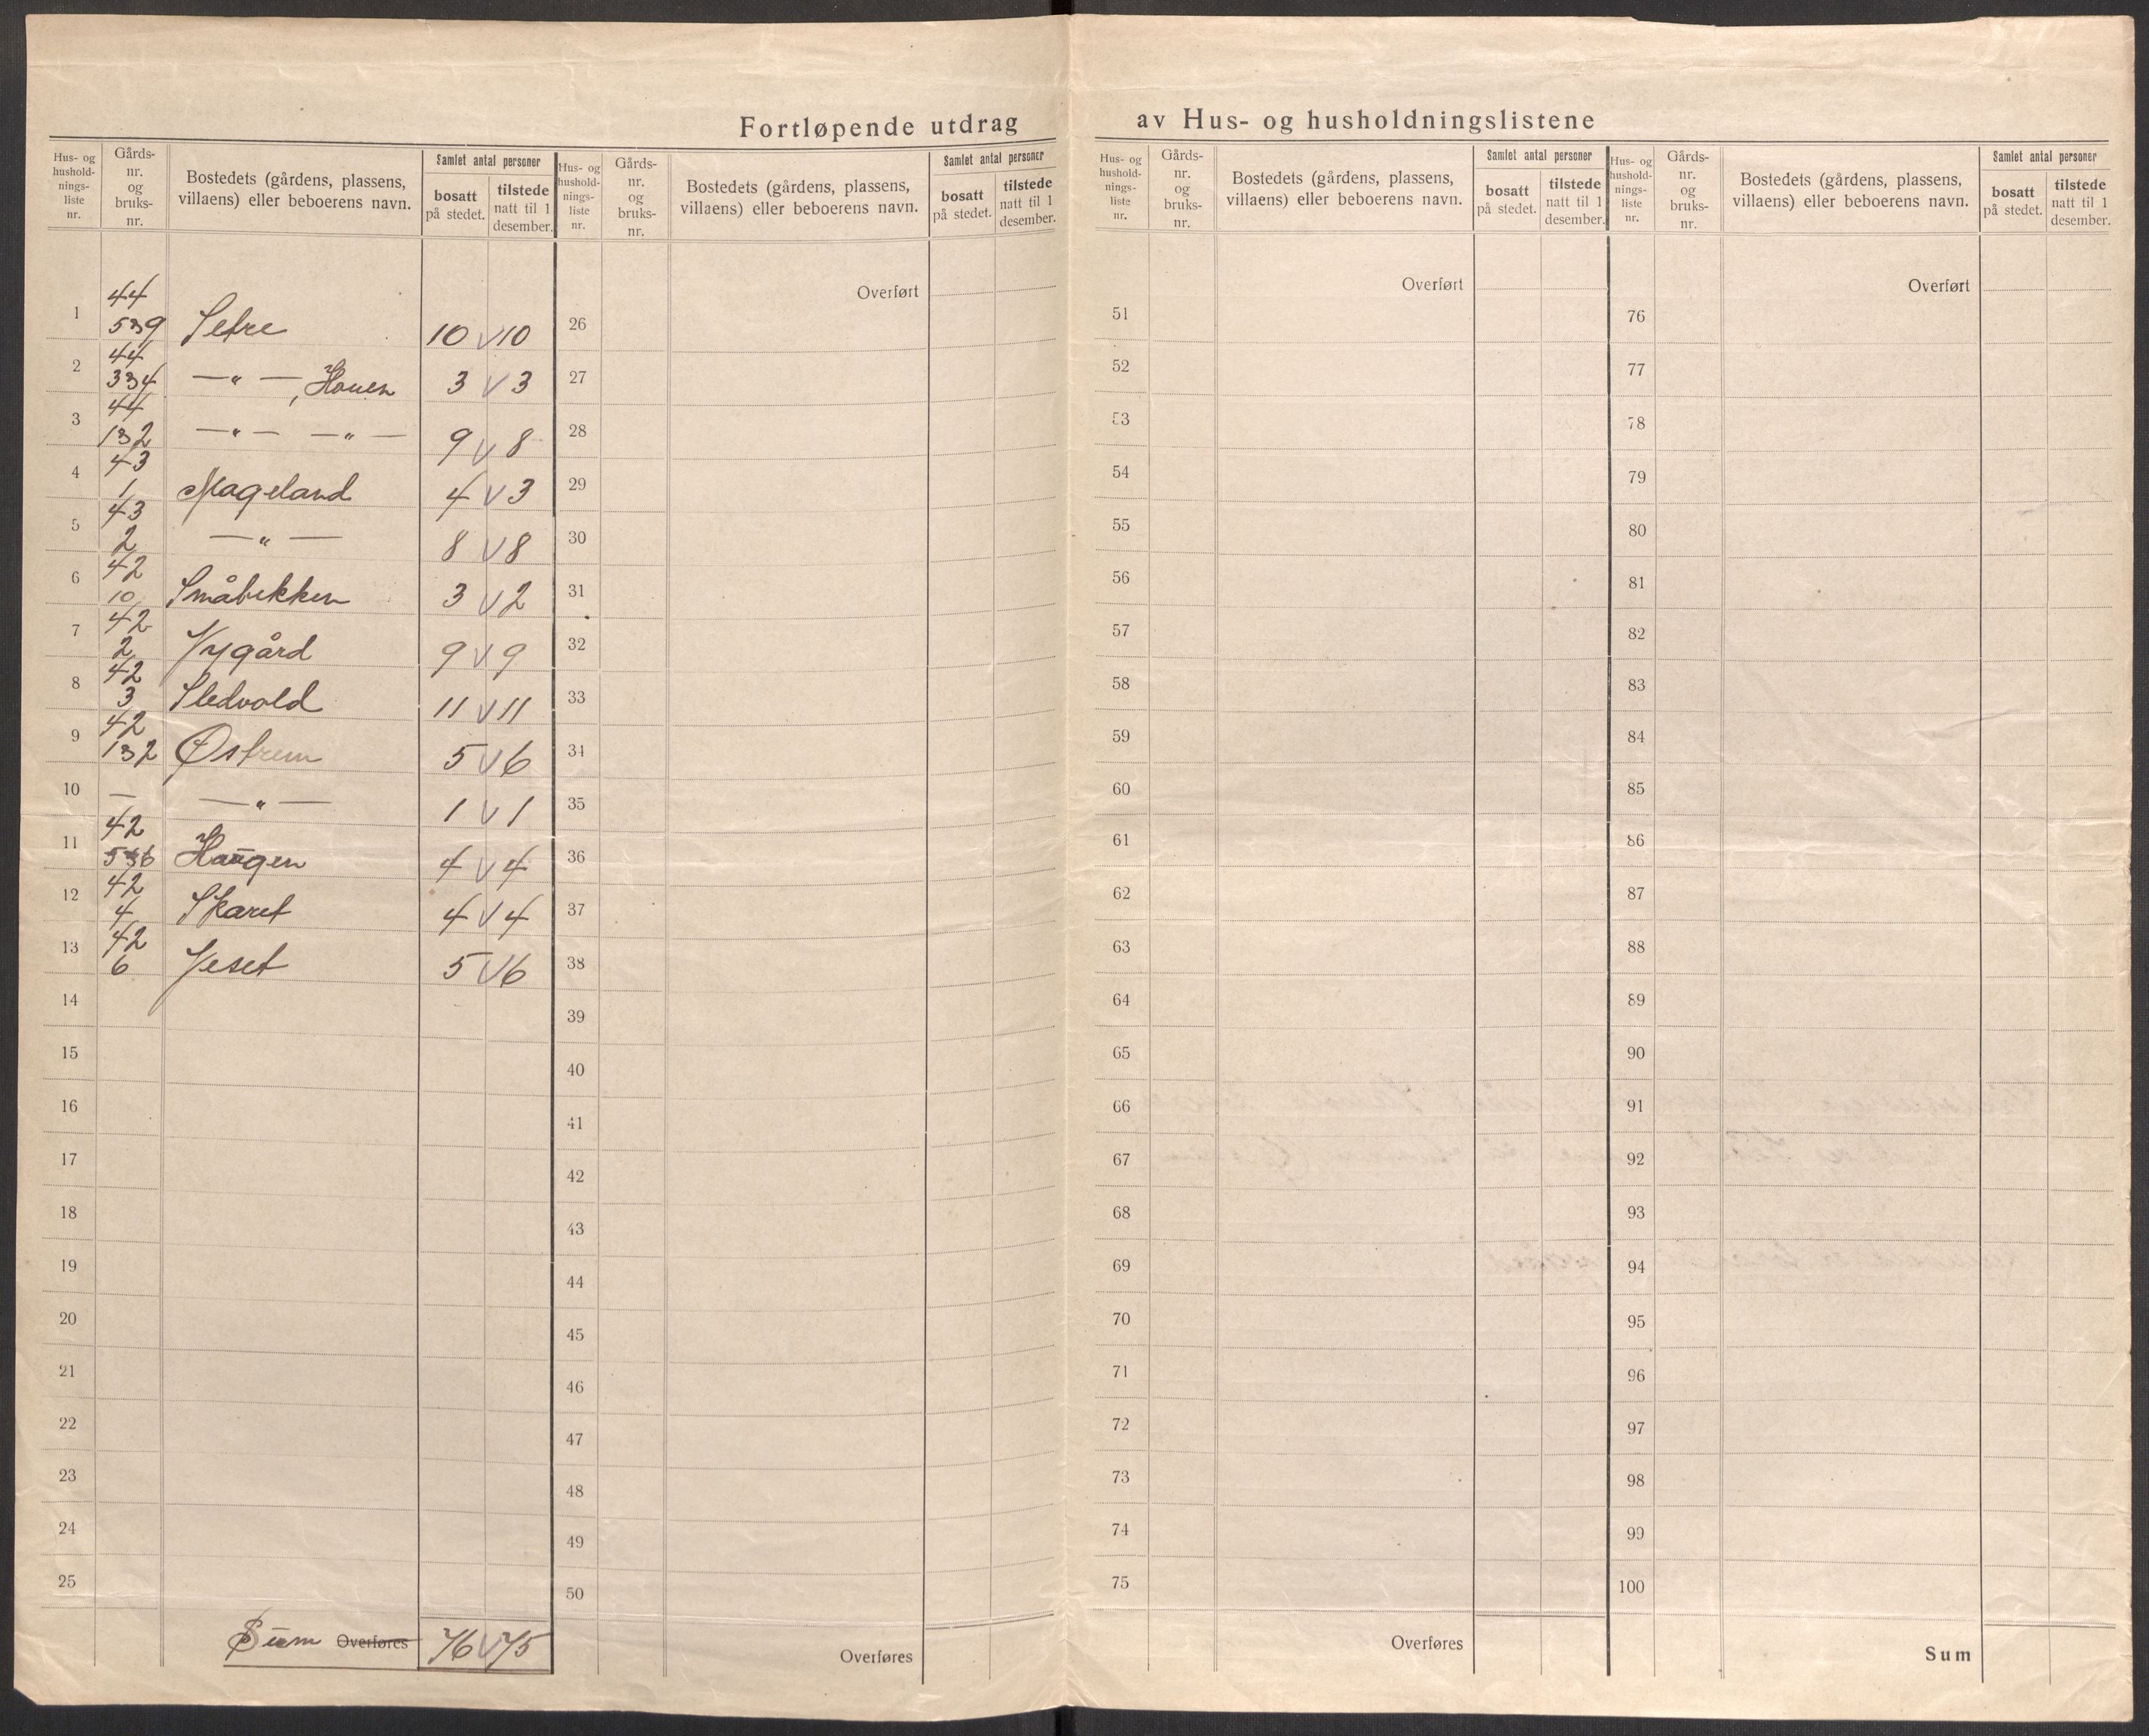 Fortløpende utdrag av Hus- og husholdningslistene
Hus- og husholdnings-liste nr. | Gårds-nr. og bruks-nr. | Bostedets (gårdens, plassens, villaens) eller beboerens navn. | Samlet antal personer | bosatt på stedet. | tilstede natt til 1 desember.
1 | 44 5 3 9 | Setre | 10 V 10
2 | 44 3 3 4 | — " —, Hauen | 3 V 3
3 | 44 1 3 2 | — " — — " — | 9 V 8
4 | 43 1 | Mageland | 4 V 3
5 | 43 2 | — " — | 8 V 8
6 | 42 10 | Småbekken | 3 V 2
7 | 42 2 | Nygård | 9 V 9
8 | 42 3 | Sledvold | 11 V 11
9 | 42 1 3 2 | Østrem | 5 V 6
10 | — | — " — | 1 V 1
11 | 42 5 3 6 | Haugen | 4 V 4
12 | 42 4 | Skaret | 4 V 4
13 | 42 6 | Jeset | 5 V 6
14
15
16
17
18
19
20
21
22
23
24
25
Sum Overføres | 76 V 75
Hus- og husholdnings-liste nr. | Gårds-nr. og bruks-nr. | Bostedets (gårdens, plassens, villaens) eller beboerens navn. | Samlet antal personer | bosatt på stedet. | tilstede natt til 1 desember.
Overført
26
27
28
29
30
31
32
33
34
35
36
37
38
39
40
41
42
43
44
45
46
47
48
49
50
Overføres
Hus- og husholdnings-liste nr. | Gårds-nr. og bruks-nr. | Bostedets (gårdens, plassens, villaens) eller beboerens navn. | Samlet antal personer | bosatt på stedet. | tilstede natt til 1 desember.
Overført
51
52
53
54
55
56
57
58
59
60
61
62
63
64
65
66
67
68
69
70
71
72
73
74
75
Overføres
Hus- og husholdnings-liste nr. | Gårds-nr. og bruks-nr. | Bostedets (gårdens, plassens, villaens) eller beboerens navn. | Samlet antal personer | bosatt på stedet. | tilstede natt til 1 desember.
Overført
76
77
78
79
80
81
82
83
84
85
86
87
88
89
90
91
92
93
94
95
96
97
98
99
100
Sum